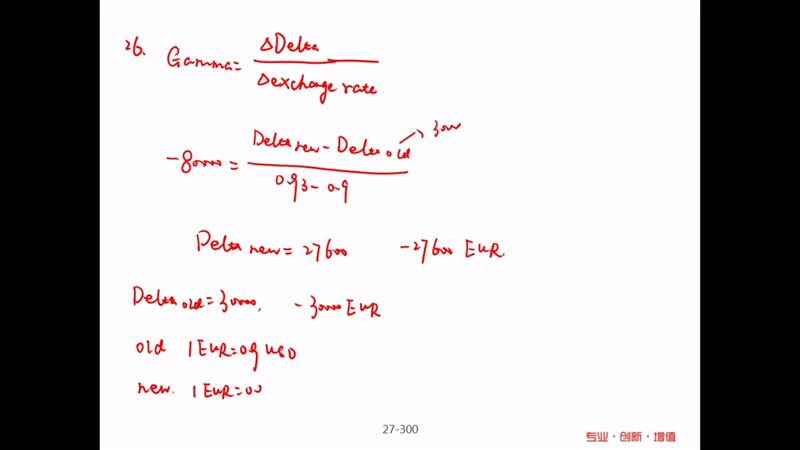 26. Gamma = ΔDelta / Δexchange rate
-80000 = Delta new - Delta old / 0.93 - 0.9
→ 3000
Delta new = 27600 -27600 EUR.
Delta old = 30000, -30000 EUR
old 1 EUR = 0.9 USD
new. 1 EUR = 0.
27-300
专业·创新·增值